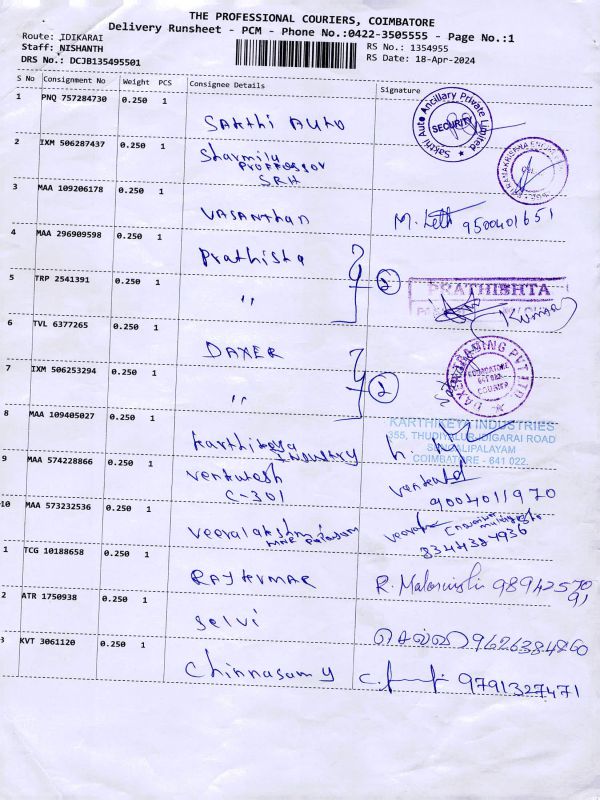 THE PROFESSIONAL COURIERS, COIMBATORE
Delivery Runsheet - PCM - Phone No.:0422-3505555 - Page No.:1
Route: IDIKARAI
Staff: NISHANTH
DRS No.: DCJB135495501
RS No.: 1354955
RS Date: 18-Apr-2024
S No Consignment No Weight PCS Consignee Details Signature
1 PNQ 757284730 0.250 1
Sakthi Auto
Sakthi Auto Ancillary Private Limited
SECURITY
2 IXM 506287437 0.250 1
Sharmily
Proffessor
SRH
3 MAA 109206178 0.250 1
VASANthan
9500401651
4 MAA 296909598 0.250 1
Prathista
2
5 TRP 2541391 0.250 1
"
PRATHISHTA
Kumar
6 TVL 6377265 0.250 1
DAXER
2
7 IXM 506253294 0.250 1
"
COIMBATORE
COURIER
8 MAA 109405027 0.250 1
Karthikeya
Industry
KARTHIKEYA INDUSTRIES
355, THUDIYALUR-IDIGARAI ROAD
COIMBATORE - 641 022.
9 MAA 574228866 0.250 1
Venkatesh
C-301
9004011970
10 MAA 573232536 0.250 1
Veeralakshmi
8344384936
1 TCG 10188658 0.250 1
RAJKUMAR
R.
98942570
91
2 ATR 1750938 0.250 1
Selvi
செல்வி 9626384860
3 KVT 3061120 0.250 1
Chinnasamy
9791327471